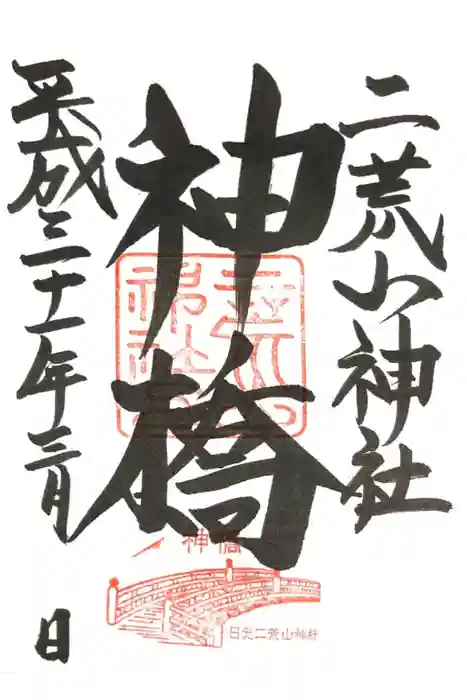 二荒山神社
神橋
平成三十一年三月 日
神橋
日光二荒山神社